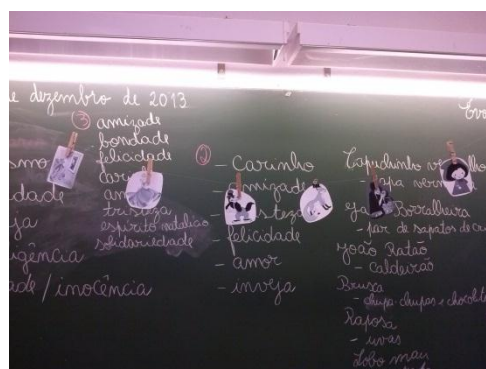 e dezembro de 2013
③ amizade
bondade
felicidade
tristeza
espírito natalício
solidariedade
dade
ja
igência
ade / inocência
- Carinho
- amizade
- felicidade
- amor
- inveja
Capuchinho
- capa
Borralheira
- par de sapatos de
João Ratão
- caldeirão
Bruxa
- chupa-chupas e chocolat
Raposa
- uvas
Lobo mau